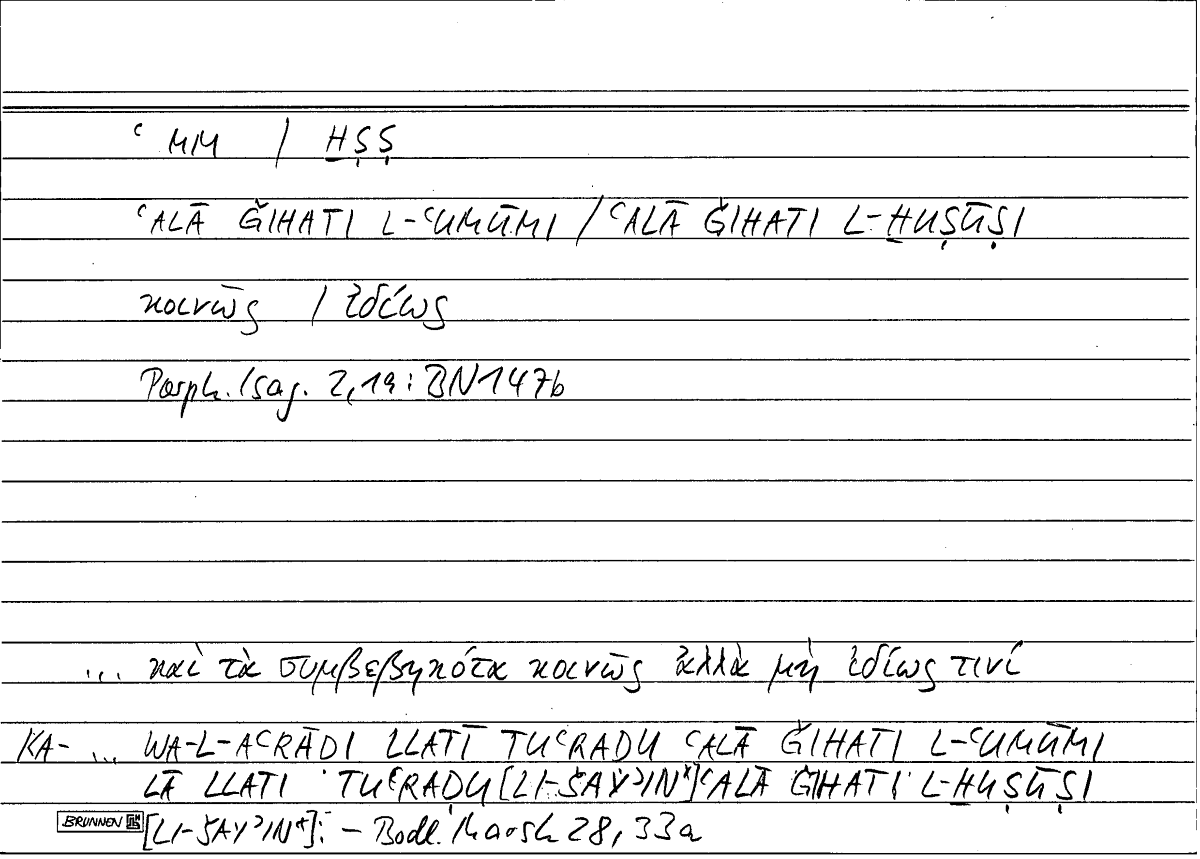 ʿMM / ḪṢṢ
ʿALĀ ǦIHATI L-ʿUMŪMI / ʿALĀ ǦIHATI L-ḪUṢŪṢI
κοινῶς / ἰδίως
Porph. Isag. 2,19: BN 147b
... καὶ τὰ συμβεβηκότα κοινῶς ἀλλὰ μὴ ἰδίως τινί
KA- ... WA-L-AʿRĀDI LLATĪ TUʿRADU ʿALĀ ǦIHATI L-ʿUMŪMI
LĀ LLATI TUʿRAḌU [LI-ŠAYʾIN*] ʿALĀ ǦIHATI L-ḪUṢŪṢI
BRUNNEN [LI-ŠAYʾIN*]: – Bodl. Marsh 28, 33a